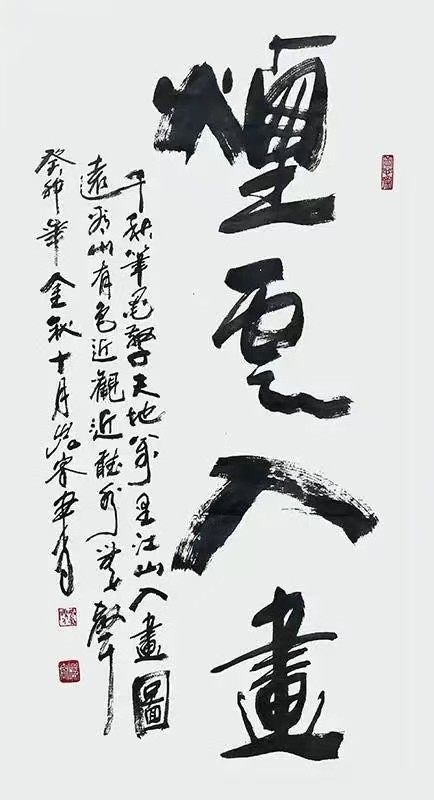 煙雲入畫
千秋筆墨驚天地萬里江山入畫圖
遠看山有色近觀近聽水無聲
癸卯年金秋十月